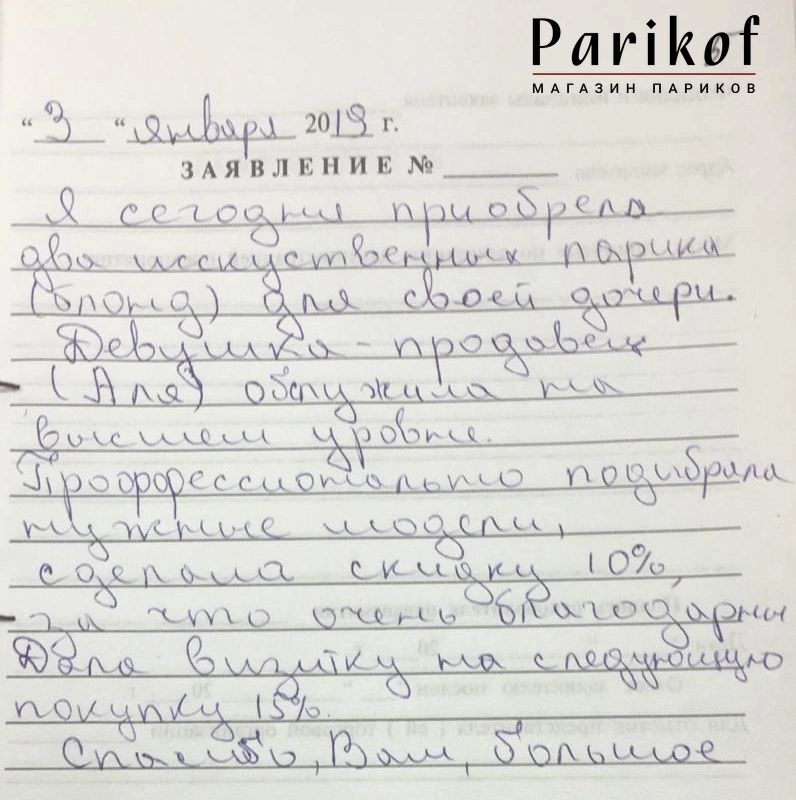 Parikof
МАГАЗИН ПАРИКОВ
"3" января 2019 г.
ЗАЯВЛЕНИЕ № ________
Я сегодня приобрела
два исскуственных парика
(блонд) для своей дочери.
Девушка-продавец
(Аля) обслужила на
высшем уровне.
Профрфессионально подибрала
нужные модели,
сделала скидку 10%,
за что очень благодарны
Дала визитку на следующую
покупку 15%.
Спасибо, Вам, большое